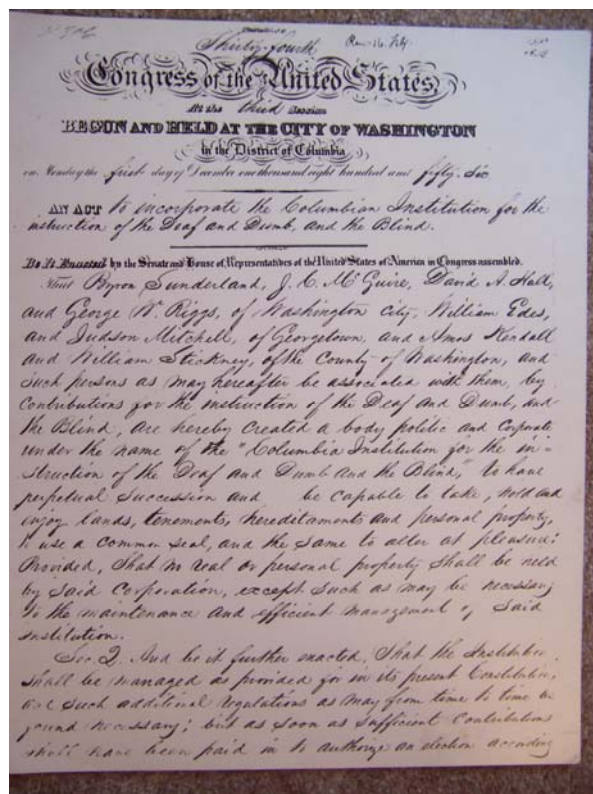 Thirty-fourth
Congress of the United States,
At the third Session
BEGUN AND HELD AT THE CITY OF WASHINGTON
in the District of Columbia
on Monday the first day of December one thousand eight hundred and fifty-six
AN ACT to incorporate the Columbian Institution for the
instruction of the Deaf and Dumb, and the Blind.
Be It Enacted by the Senate and House of Representatives of the United States of America in Congress assembled.
That Byron Sunderland, J. C. McGuire, David A. Hall,
and George W. Riggs, of Washington City, William Edes,
and Judson Mitchell, of Georgetown, and Amos Kendall
and William Stickney, of the County of Washington, and
such persons as may hereafter be associated with them, by
contributions for the instruction of the Deaf and Dumb, and
the Blind, are hereby created a body politic and corporate
under the name of the "Columbia Institution for the in-
struction of the Deaf and Dumb and the Blind," to have
perpetual succession and be capable to take, hold and
enjoy lands, tenements, hereditaments and personal property,
to use a common seal, and the same to alter at pleasure:
Provided, That no real or personal property shall be held
by said corporation, except such as may be necessary
to the maintenance and efficient management of said
institution.
Sec 2. And be it further enacted, That the Institution
shall be managed as provided for in its present Constitution,
and such additional regulations as may from time to time be
found necessary; but as soon as sufficient contributions
shall have been paid in to authorize an election according